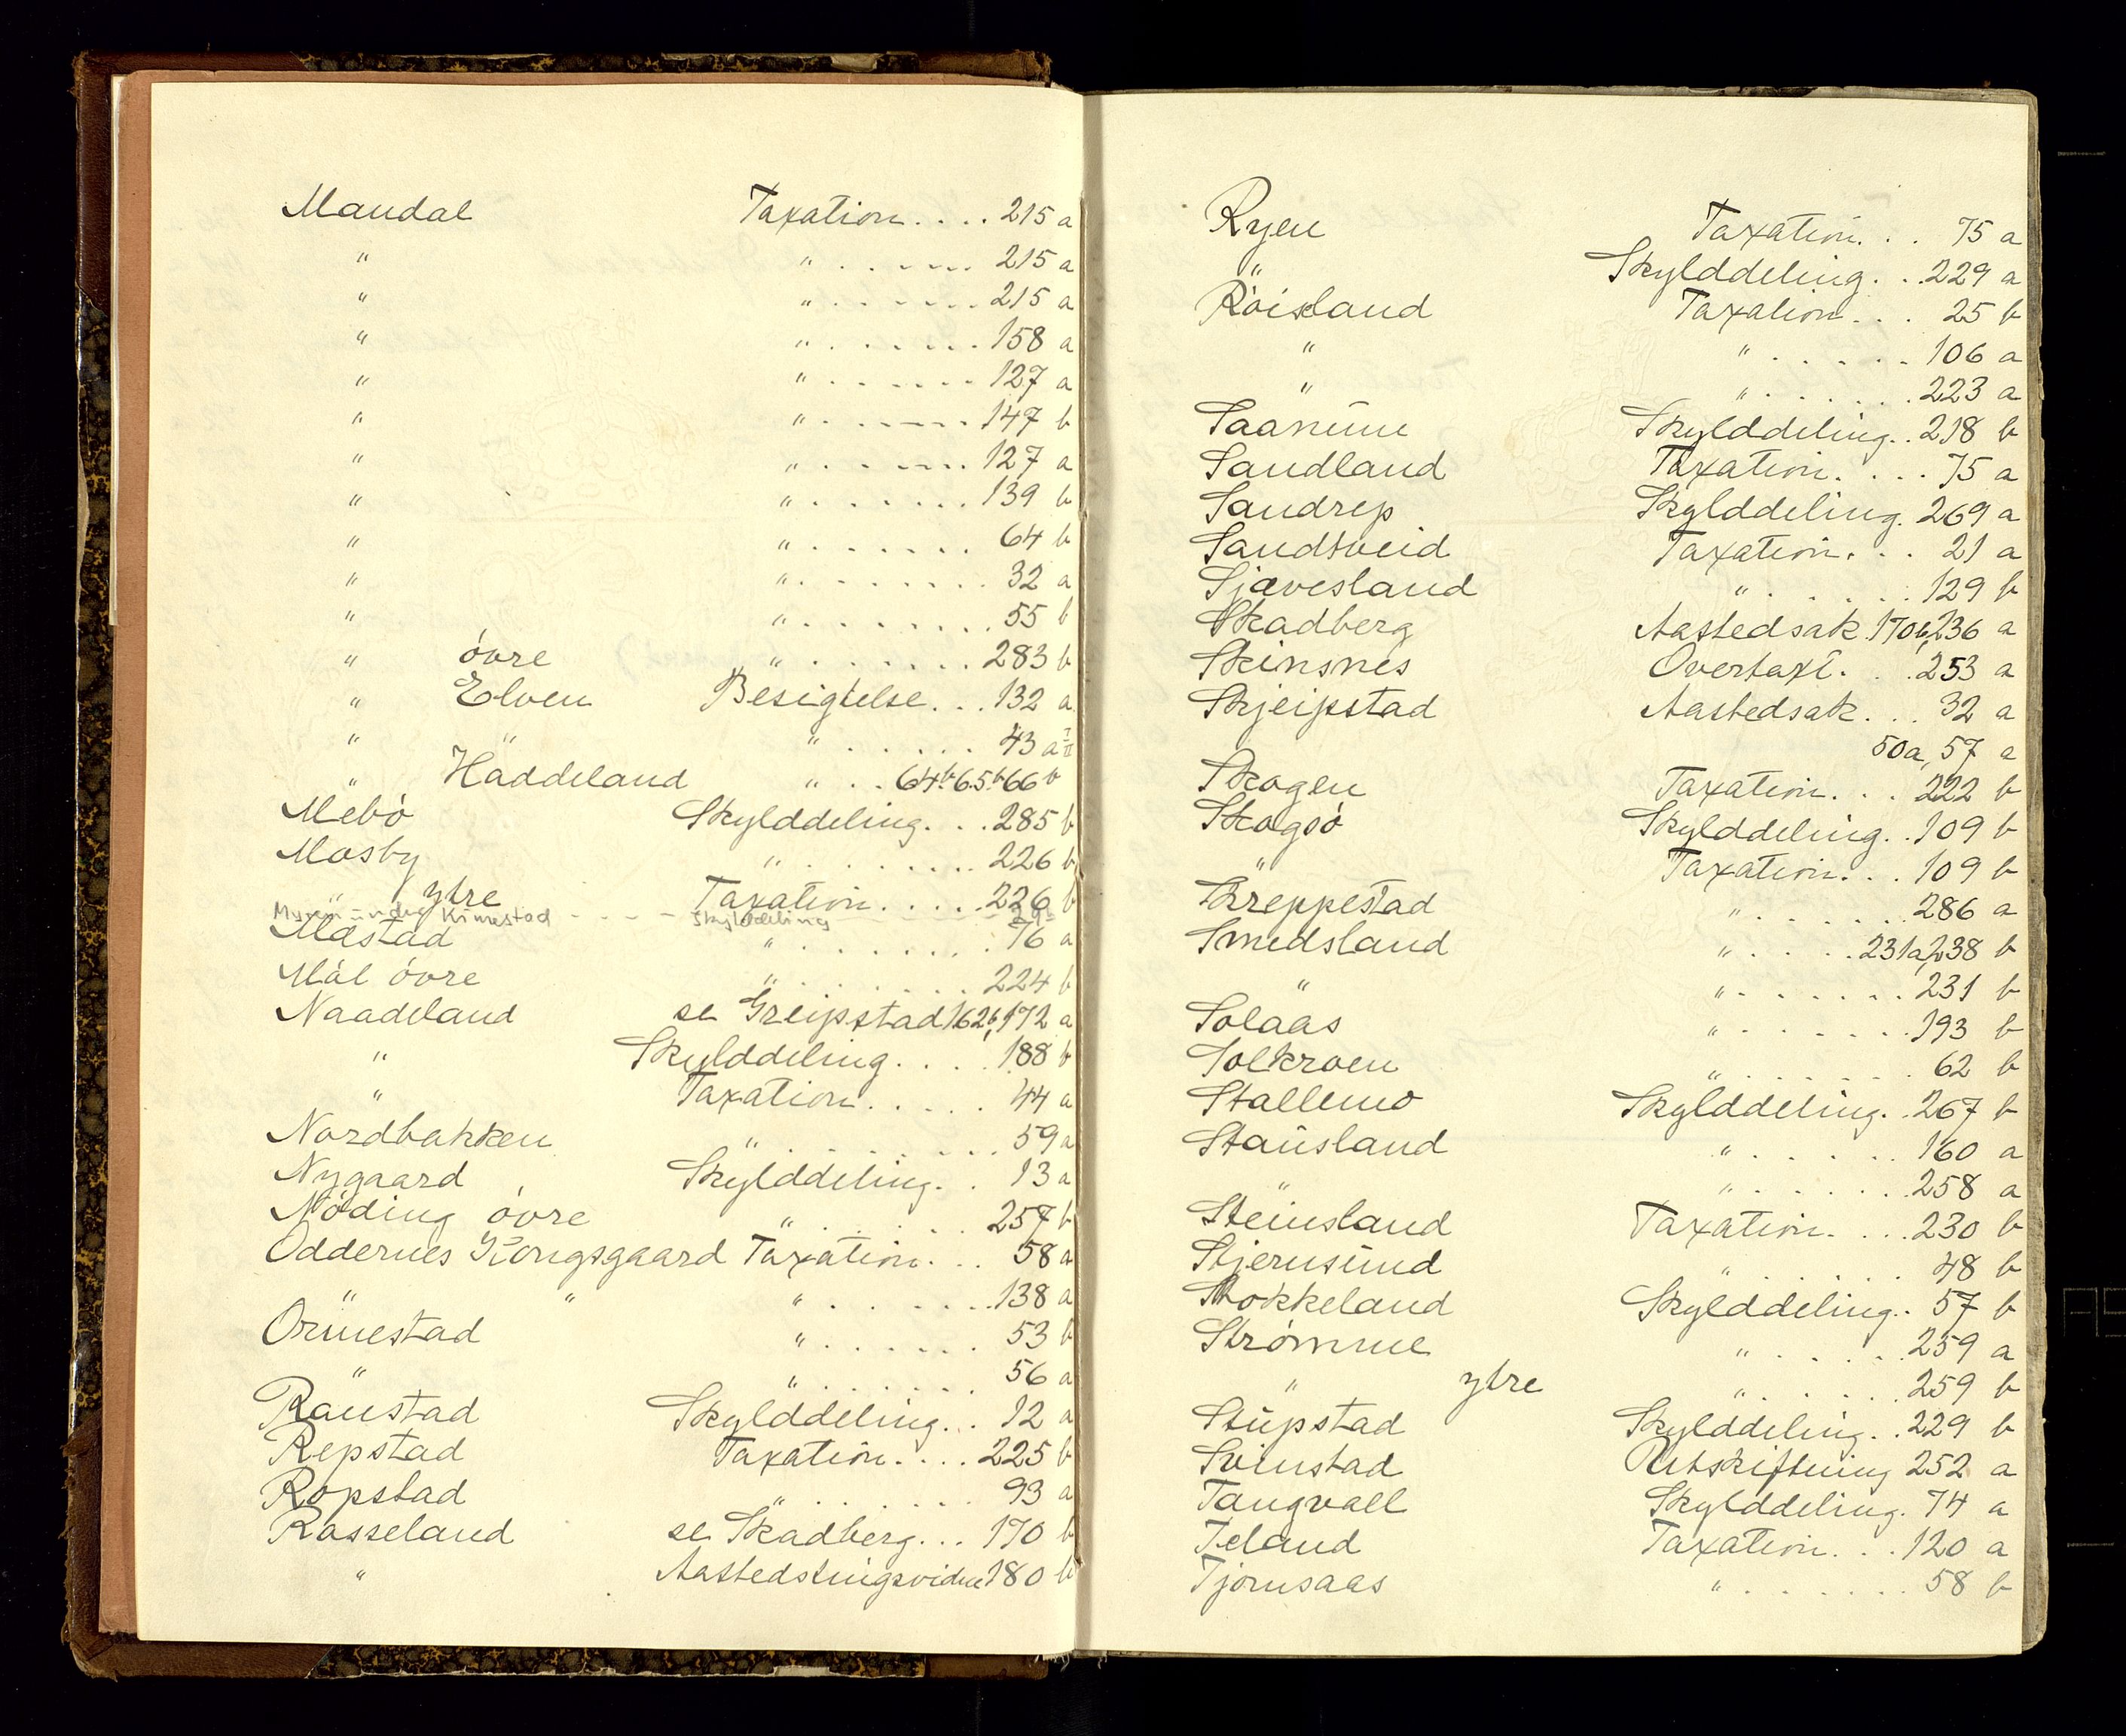 Mandal Taxation.... 215 a
" " ...... 215 a
" " ...... 215 a
" " ...... 158 a
" " ...... 127 a
" " ...... 147 b
" " ...... 127 a
" " ...... 139 b
" " ...... 64 b
" " ...... 32 a
" " ...... 55 b
" óvre " ...... 283 b
" Elven Besigtelse... 132 a
" " " ...... 43 a
" Haddeland " .. 64b 65b 66 b
Mebó Skylddeling... 285 b
Mosby " ...... 226 b
" ytre Taxation..... 226 b
Myren under Kimestad - - - - Skylddeling
Mæstad " ...... 76 a
Mål óvre " ...... 224 b
Naadeland se Greipstad 162b, 172 a
" Skylddeling.... 188 b
" Taxation..... 44 a
Nordbakken " ...... 59 a
Nygaard Skylddeling.. 13 a
Nóding óvre " ...... 257 b
Oddernes Kongsgaard Taxation... 58 a
" " " ...... 138 a
Ormestad " ...... 53 b
" " ...... 56 a
Ranstad Skylddeling... 12 a
Repstad Taxation.... 225 b
Ropstad " ...... 93 a
Rosseland se Skadberg... 170 b
" Aastedstingsvidne 180 b
Ryen Taxation... 75 a
" Skylddeling... 229 a
Róisland Taxation... 25 b
" " ...... 106 a
" " ...... 223 a
Saanum Skylddeling.. 218 b
Sandland Taxation.... 75 a
Sandrep Skylddeling. 269 a
Sandtveid Taxation... 21 a
Sjævesland " ...... 129 b
Skadberg Aastedsak. 170b, 236 a
Skinsnes Overtaxt... 253 a
Skjeipstad Aastedsak... 32 a
50a, 57 a
Skogen Taxation... 222 b
Skogsó Skylddeling.. 109 b
" Taxation... 109 b
Skreppestad " ...... 286 a
Smedsland " .... 231a, 238 b
" " ...... 231 b
Solaas " ...... 193 b
Solkroen " ...... 62 b
Stallemo Skylddeling.. 267 b
Stausland " ...... 160 a
" " ...... 258 a
Steinsland Taxation.... 230 b
Stjernsund " ...... 48 b
Stokkeland Skylddeling.. 57 b
Strømme " ...... 259 a
" ytre " ...... 259 b
Stupstad Skylddeling.. 229 b
Svinstad Utskiftning 252 a
Tangvall Skylddeling. 74 a
Teland Taxation... 120 a
Tjomsaas " ...... 58 b